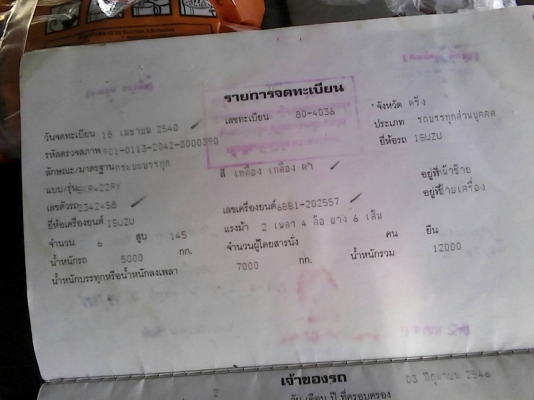 รายการจดทะเบียน
วันจดทะเบียน 18 เมษายน 2540 เลขทะเบียน 80-4036 จังหวัด ตรัง
รหัสตรวจสภาพ 901-0113-2042-0000390 ประเภท รถบรรทุกส่วนบุคคล
ลักษณะ/มาตรฐาน กระบะบรรทุก สี เหลือง เหลือง ดำ ยี่ห้อรถ ISUZU
แบบ/รุ่น
เลขตัวรถ 2342458 อยู่ที่ หน้าซ้าย
ยี่ห้อเครื่องยนต์ ISUZU เลขเครื่องยนต์ 6BB1-202557 อยู่ที่ ซ้ายเครื่อง
จำนวน 6 สูบ 145 แรงม้า 2 เพลา 4 ล้อ ยาง 6 เส้น
น้ำหนักรถ 5000 กก. จำนวนผู้โดยสารนั่ง คน ยืน
น้ำหนักบรรทุกหรือน้ำหนักลงเพลา 7000 กก. น้ำหนักรวม 12000
เจ้าของรถ
2 วัน เดือน ปี ที่ครอบครอง 03 มิถุนายน 2546